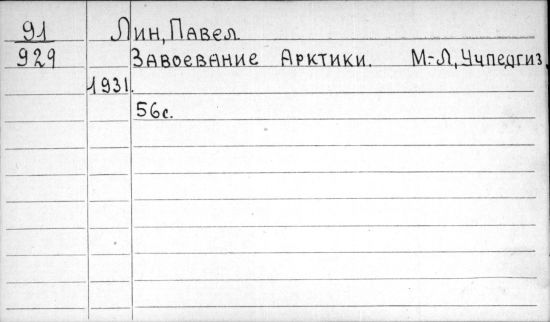 91 Лин, Павел
929 Завоевание Арктики. М.-Л, Учпедгиз,
1931.
56с.